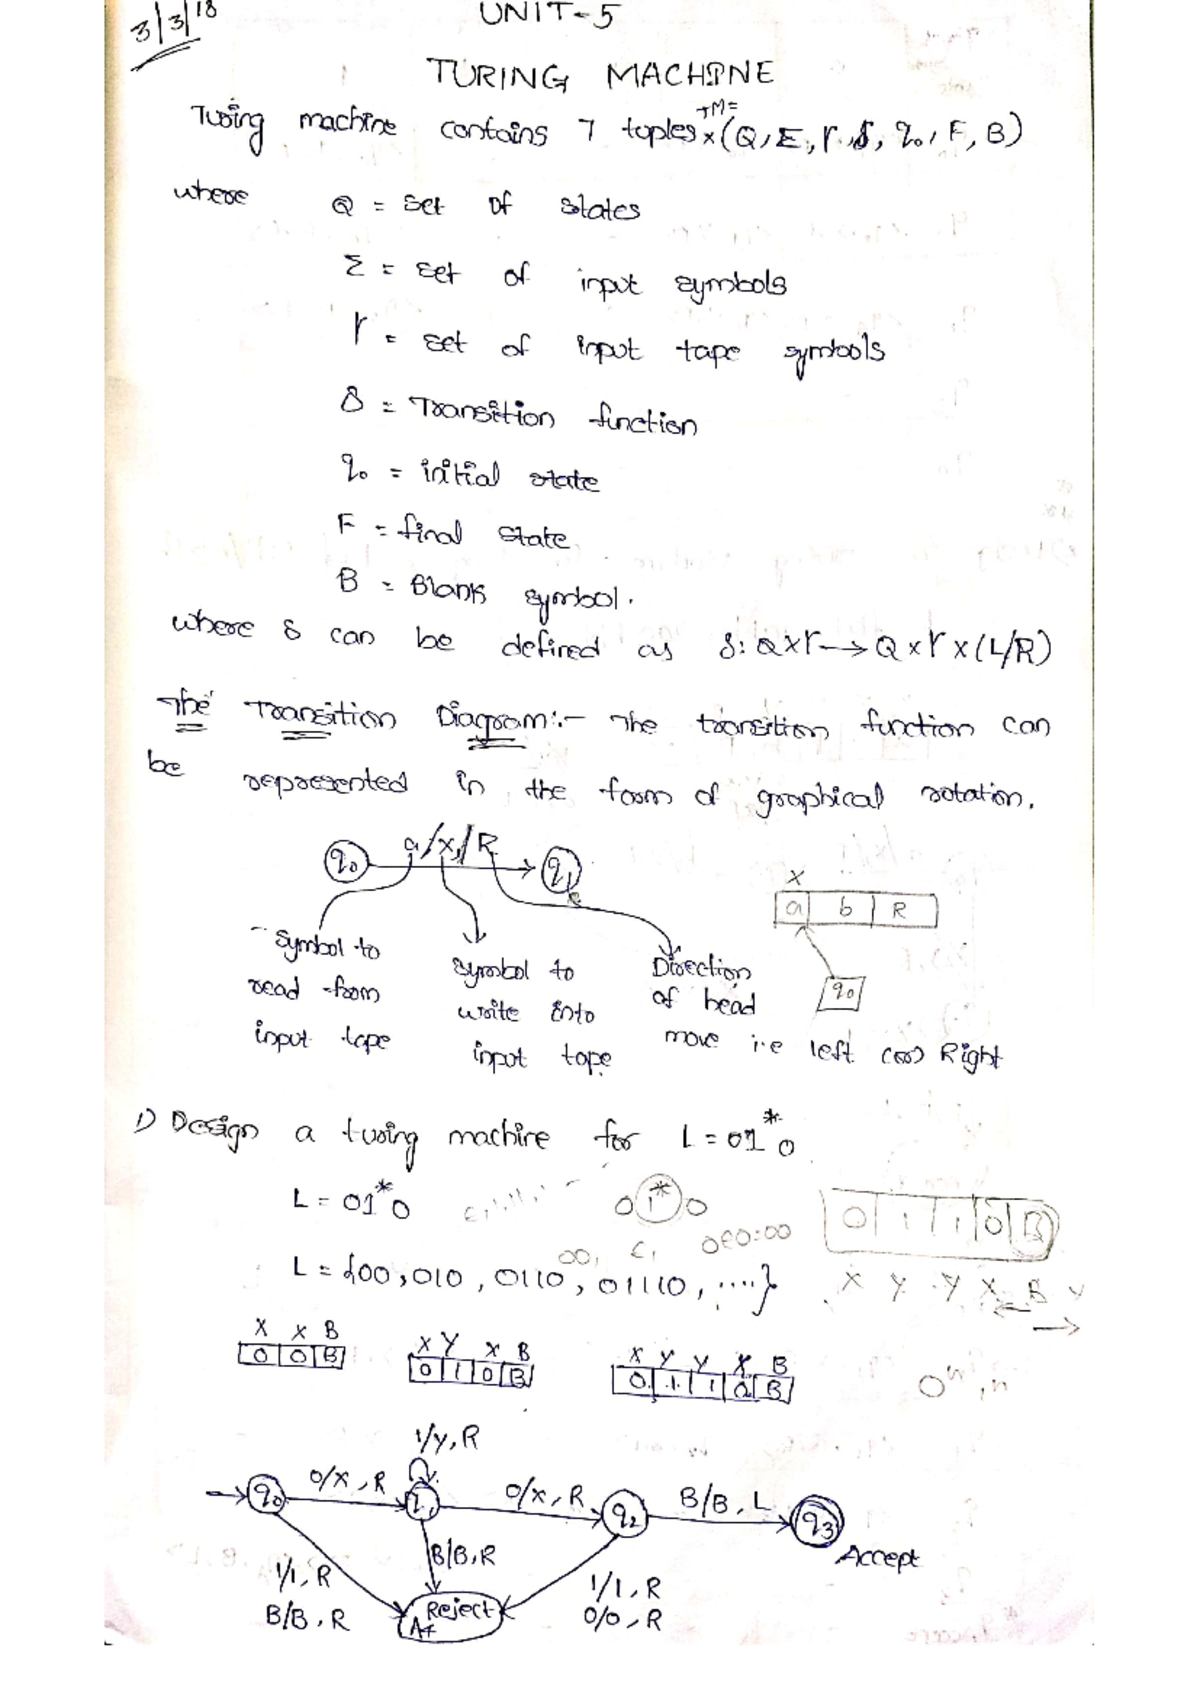 3/3/18
UNIT-5
TURING MACHINE
Turing machine contains 7 tuples TM= (Q, Σ, Γ, δ, q0, F, B)
where Q = Set of states
Σ = set of input symbols
Γ = set of input tape symbols
δ = Transition function
q0 = initial state
F = final state
B = Blank symbol.
where δ can be defined as δ: Q×Γ→Q×Γ×(L/R)
The Transition Diagram:- The transition function can
be represented in the form of graphical notation.
q0 a/x,/R q1
X
a b R
q0
Symbol to read from input tape
Symbol to write into input tape
Direction of head move i.e left (or) Right
1) Design a turing machine for L = 01*0
L = 01*0
0 1* 0
0 1 1 0 B
X Y Y X B
00,
L = {00, 010, 0110, 01110, ....}
X X B
0 0 B
X Y X B
0 1 0 B
X Y Y X B
0 1 1 0 B
1/Y, R
q0 0/X, R q1 0/X, R q2 B/B, L q3
Accept
1/1, R
B/B, R
B/B, R
1/1, R
0/0, R
Reject